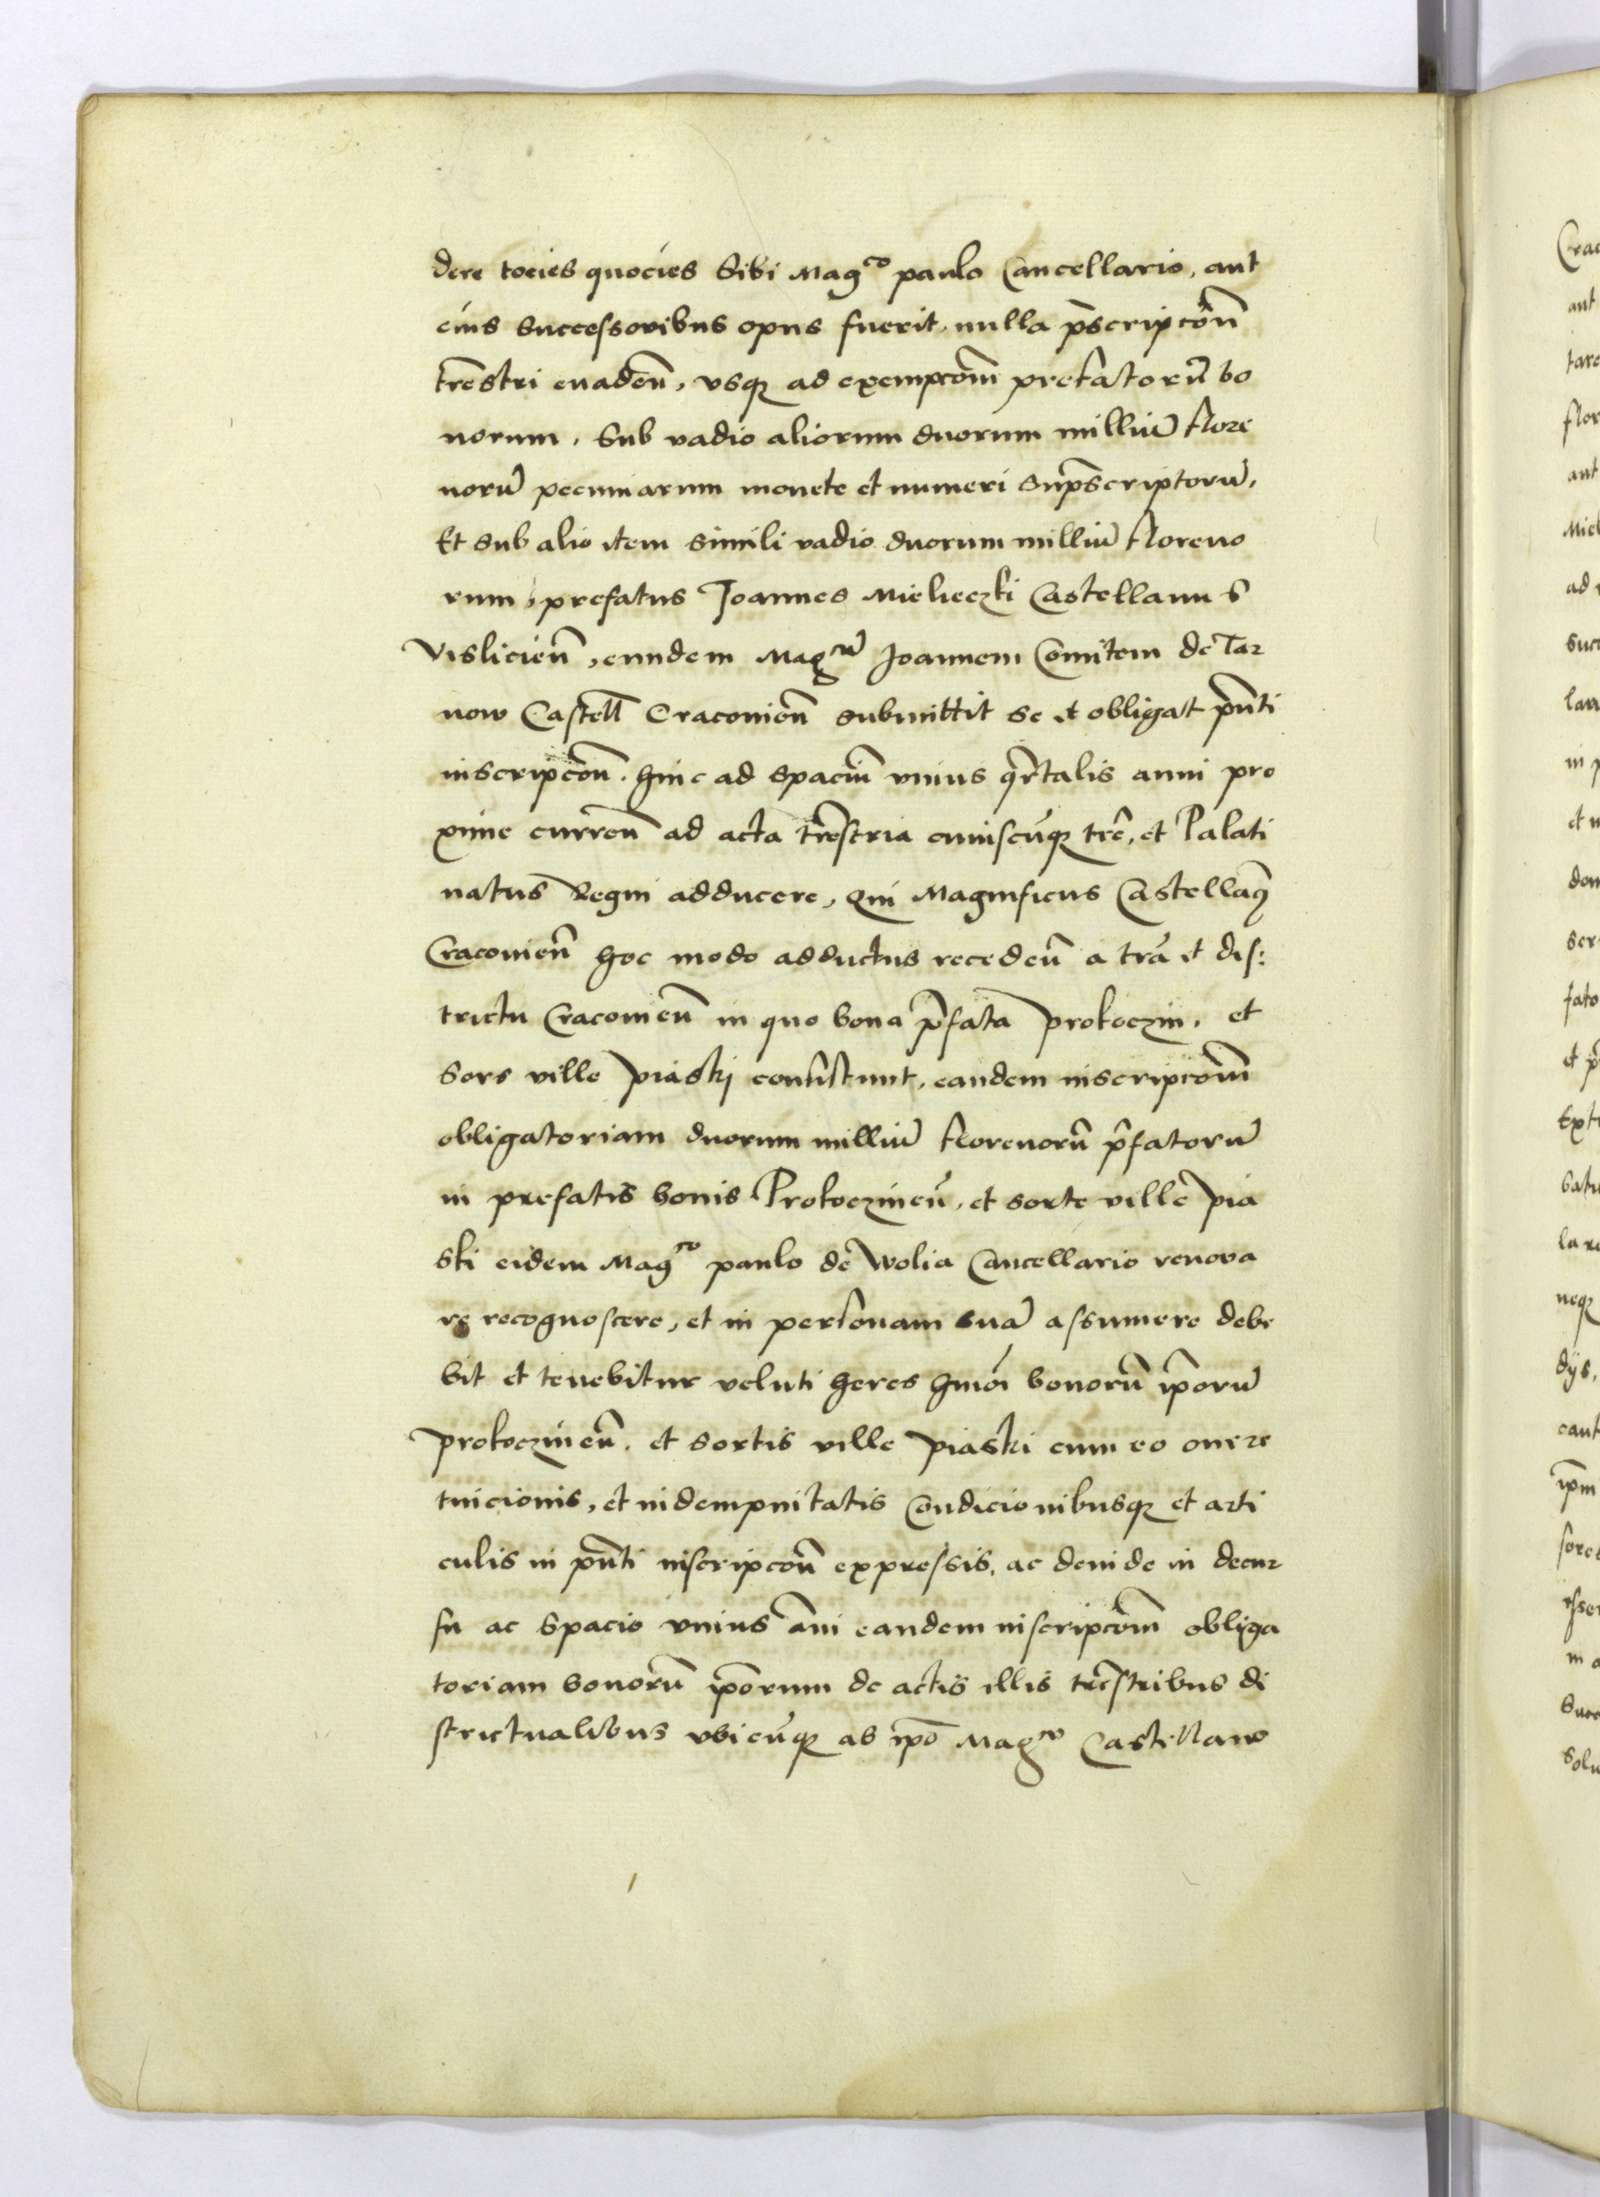 dere tocies quocies Sibi Mag^co paulo Cancellario, aut
eius Successoribus opus fuerit, nulla p̄scripcōn̄
tr̄estri euadeñ, vsqȝ ad exempcōm̄ prefatorū bo
norum, Sub vadio aliorum duorum milliū flore
norū pecuniarum monete et numeri sup̄scriptorū,
Et sub alio item simili vadio duorum milliū floreno
rum, prefatus Joannes Mielieczki Castellanus
Visliciēn, eundem Mag^cū Joannem Comitem de Tar
now Castell̄ Cracouieñ submittit se et obligat p̄nti
inscripcōn̄. hinc ad spaciū vnius q̄rtalis anni pro
xime curreñ ad acta tr̄estria cuiuscūqȝ tr̄e, et Palati
natus Regni adducere, Qui Magnificus Castellan̄ꝰ
Cracouieñ hoc modo adductus recedeñ a tr̄a et dis:
trictu Cracouieñ in quo bona p̄fata prokoczin, et
Sors ville piaski consistunt, eandem inscripcōm̄
obligatoriam duorum milliū florenorū p̄fatorū
in prefatis bonis Prokoczineñ, et sorte ville pia
ski eidem Mag^co paulo de Wolia Cancellario renoua
re recognoscere, et in personam suā assumere debe
bit et tenebitur veluti heres hmōi bonorū ip̄orū
prokoczineñ, et sortis ville piaski cum eo onere
tuicionis, et indempnitatis Condicionibusqȝ et arti
culis in p̄nti inscripcōn̄ expressis, ac deinde in decur
su ac spacio vnius āni eandem inscripcōm̄ obliga
toriam bonorū ip̄orum de actis illis tr̄estribus di
strictualibus vbicūqȝ ab ip̄o Mag^co Castellano
Crac
aut
tare
flor
aut
Miel
ad
succ
lar
in p
et
dom
scr
fato
et p̄
Ext
batu
la re
neqȝ
dijs,
caut
ip̄m
sores
esse
in a
Succ
Solu